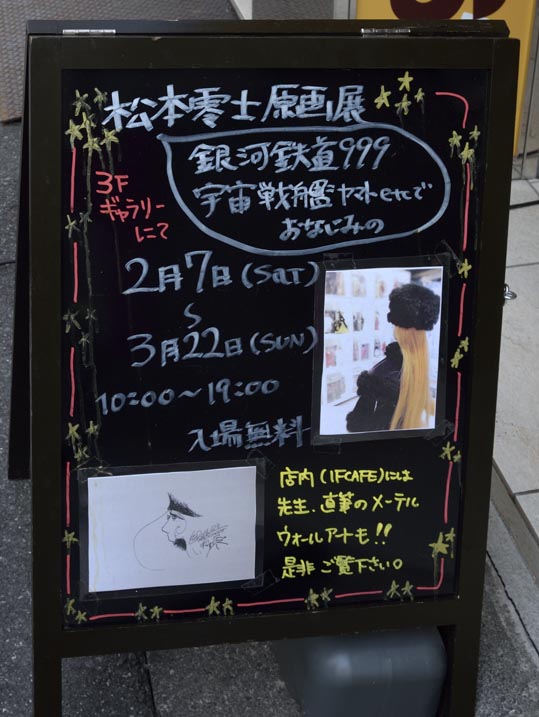 松本零士原画展
銀河鉄道999
宇宙戦艦ヤマトetcで
おなじみの
3F
ギャラリー
にて
2月7日(SAT)
〜
3月22日(SUN)
10:00〜19:00
入場無料
店内(1FCAFE)には
先生、直筆のメーテル
ウォールアートも!!
是非ご覧下さい。